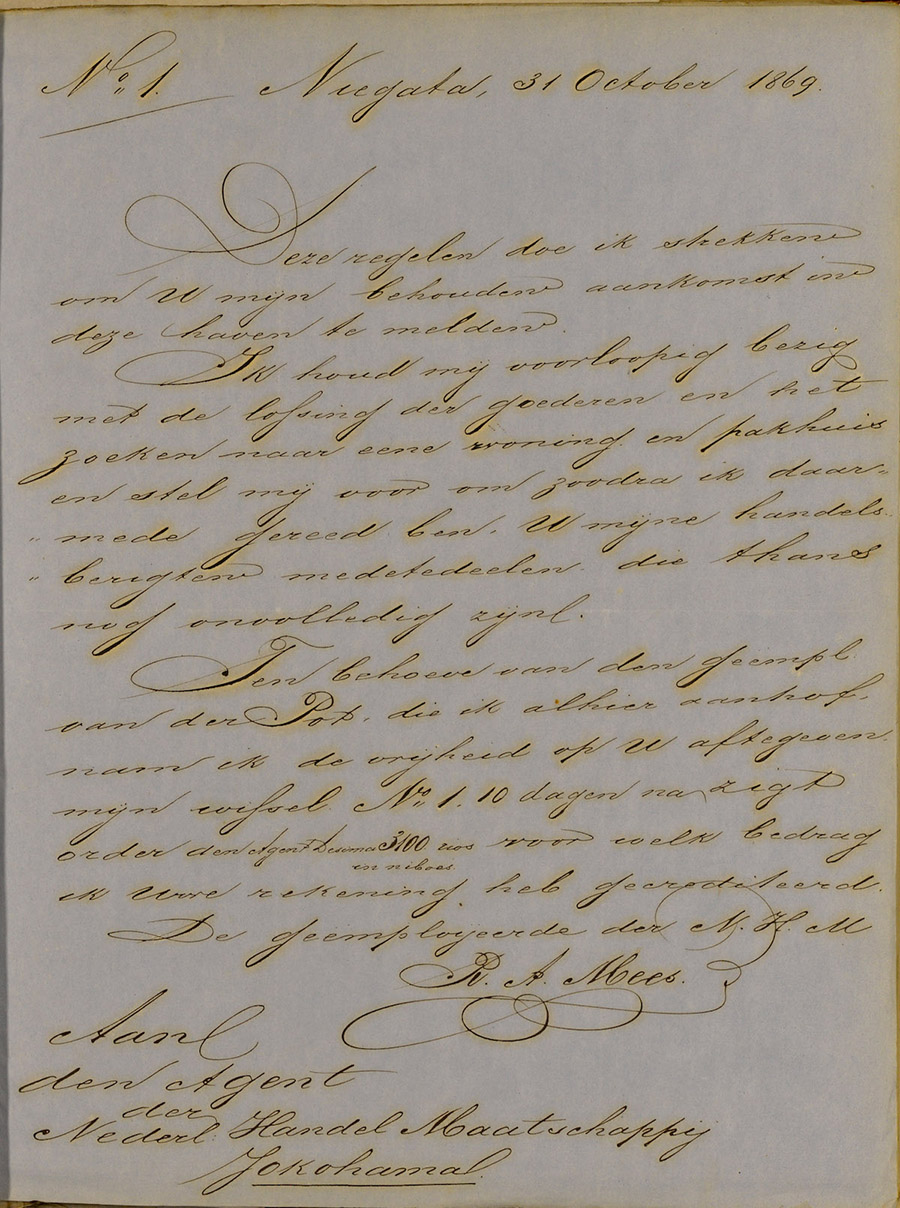 No. 1. Niegata, 31 October 1869.
Deze regelen doe ik strekken
om U mijn behouden aankomst in
deze haven te melden.
Ik houd mij voorloopig bezig
met de lossing der goederen en het
zoeken naar eene woning en pakhuis
en stel mij voor om zoodra ik daar=
"mede gereed ben, U mijne handels
"berigten medetedeelen die thans
nog onvolledig zijn.
Ten behoeve van den geëmpl.
van der Pot, die ik alhier aanhof,
nam ik de vrijheid op U aftegeven
mijn wissel No. 1. 10 dagen na zigt
order den Agent Desima 3100 rios voor welk bedrag
in niboes
ik Uwe rekening heb gecrediteerd.
De geëmployeerde der N. H. M
R. A. Mees.
Aan
den Agent
der
Nederl. Handel Maatschappij
Jokohama